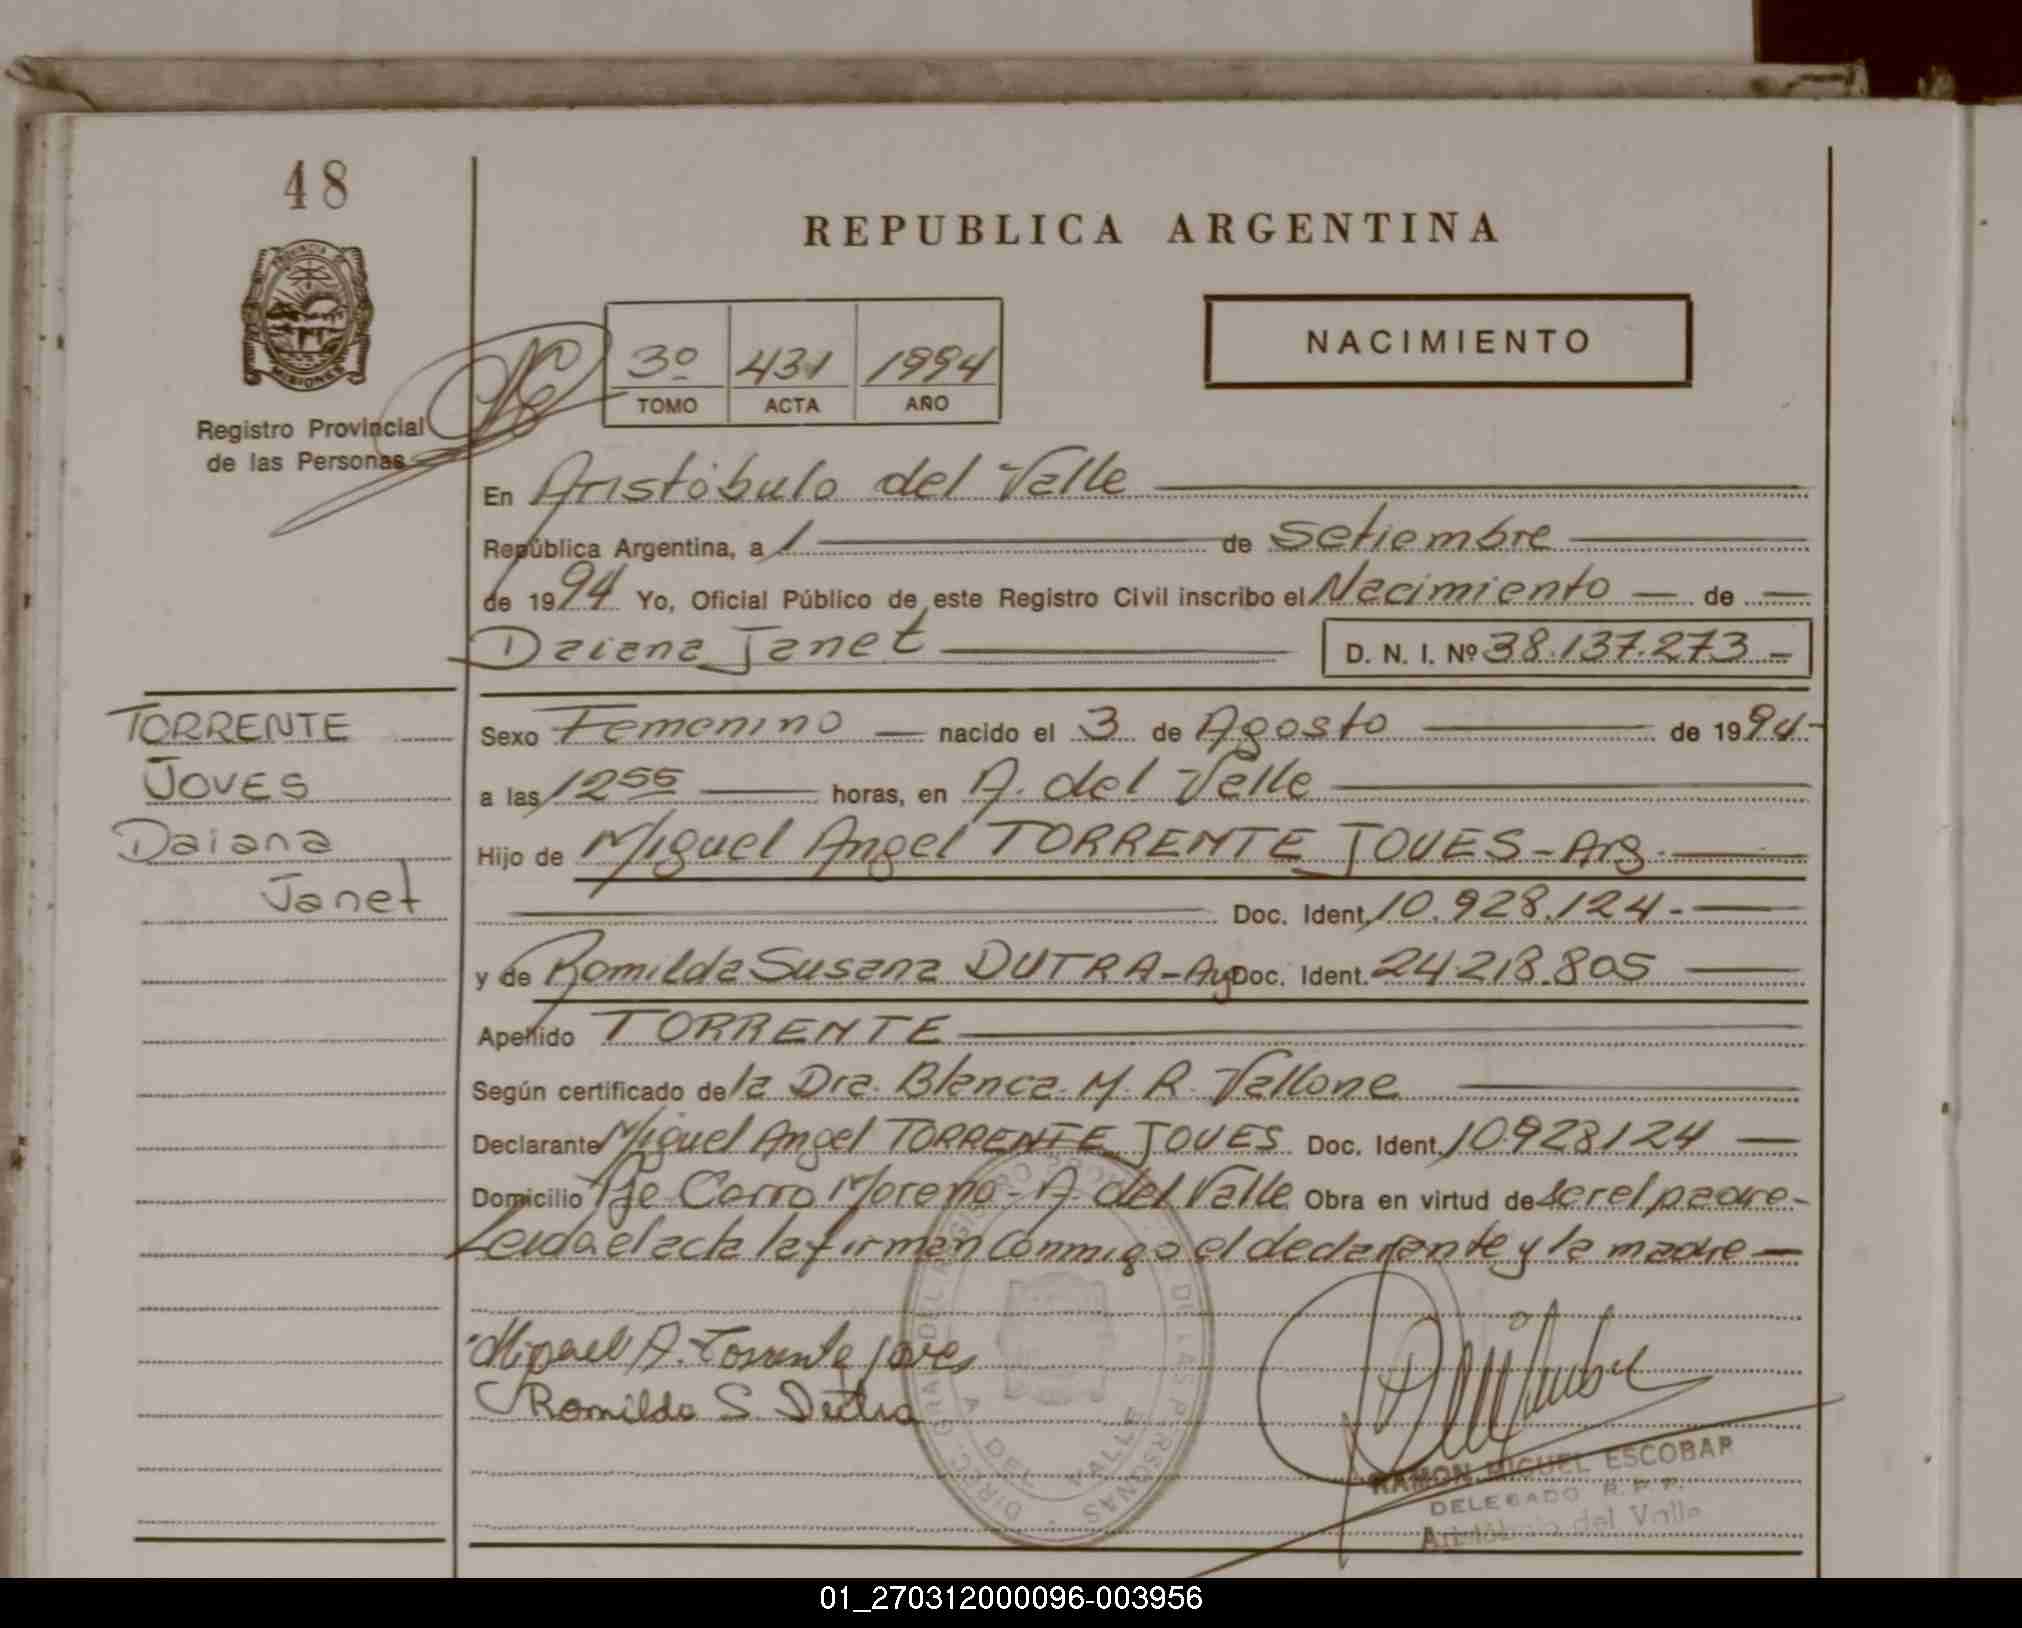 48
REPUBLICA ARGENTINA
PROVINCIA
MISIONES
NACIMIENTO
3º 431 1994
TOMO ACTA AÑO
Registro Provincial
de las Personas
En Aristóbulo del Valle
República Argentina, a 1 de Setiembre
de 1994 Yo, Oficial Público de este Registro Civil inscribo el Nacimiento de
Daiana Janet D. N. I. Nº 38.137.273
TORRENTE
JOVES
Daiana
Janet
Sexo Femenino nacido el 3 de Agosto de 1994
a las 12 55 horas, en A. del Valle
Hijo de Miguel Angel TORRENTE JOVES - Arg.
Doc. Ident. 10.928.124
y de Romilda Susana DUTRA - Arg Doc. Ident. 24218.805
Apellido TORRENTE
Según certificado de la Dra. Blanca M. R. Vallone
Declarante Miguel Angel TORRENTE JOVES Doc. Ident. 10.928124
Domicilio Pje Cerro Moreno - A. del Valle Obra en virtud de ser el padre -
Leida el acta la firman conmigo el declarante y la madre
Miguel A. Torrente Joves
Romilda S. Dutra
DE LAS PERSONAS
A DEL VALLE
RAMON MIGUEL ESCOBAR
DELEGADO R. P. P.
Aristóbulo del Valle
01_270312000096-003956